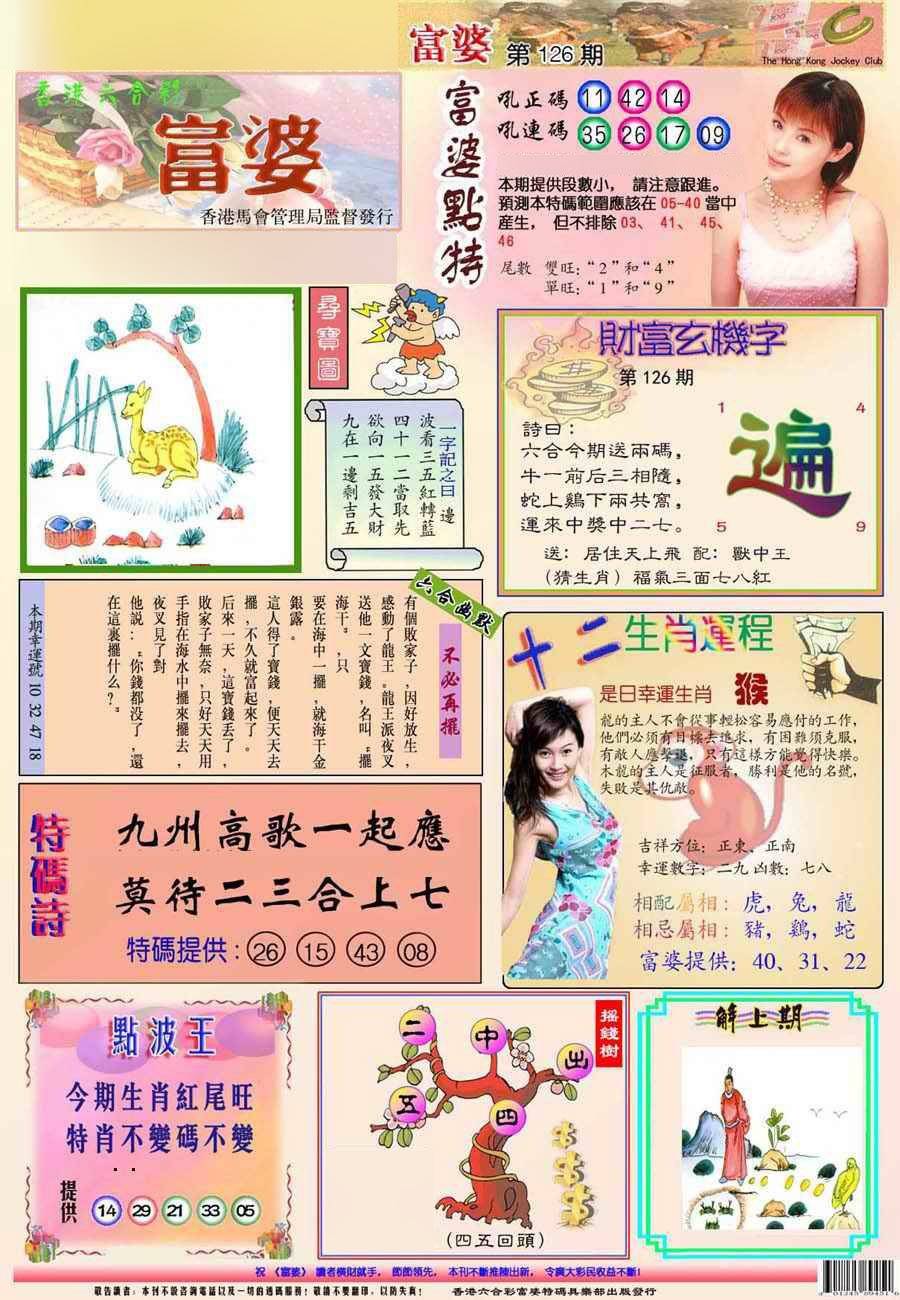 富婆 第126期
The Hong Kong Jockey Club
香港六合彩
富婆
香港馬會管理局監督發行
富婆點特
吼正碼 11 42 14
吼連碼 35 26 17 09
本期提供段數小，請注意跟進。
預測本特碼範圍應該在 05-40 當中
産生，但不排除 03、41、45、
46
尾數 雙旺：“2”和“4”
單旺：“1”和“9”
尋寶圖
一字記之曰 邊
波看三五紅轉藍
四十一二當取先
欲向一五發大財
九在一邊剩吉五
財富玄機字
第126期
詩曰：
六合今期送兩碼，
牛一前后三相隨，
蛇上鷄下兩共窩，
運來中獎中二七。
1 4
遍
5 9
送：居住天上飛 配：獸中王
（猜生肖）福氣三面七八紅
六合幽默
不必再擺
有個敗家子，因好放生，
感動了龍王。龍王派夜叉
送他一文寶錢，名叫“擺
海干”，只
要在海中一擺，就海干金
銀露。
這人得了寶錢，便天天去
擺，不久就富起來了。
后來一天，這寶錢丢了，
敗家子無奈，只好天天用
手指在海水中擺來擺去，
夜叉見了對
他説：“你錢都没了，還
在這裏擺什么？”
本期幸運號 10 32 47 18
十二生肖運程
是日幸運生肖 猴
龍的主人不會從事輕松容易應付的工作，
他們必須有目標去追求，有困難須克服，
有敵人應擊退，只有這樣方能覺得快樂。
木龍的主人是征服者，勝利是他的名號，
失敗是其仇敵。
吉祥方位：正東、正南
幸運數字：二九 凶數：七八
相配屬相：虎，兔，龍
相忌屬相：豬，鷄，蛇
富婆提供：40、31、22
特碼詩
九州高歌一起應
莫待二三合上七
特碼提供：26 15 43 08
點波王
今期生肖紅尾旺
特肖不變碼不變
提供 14 29 21 33 05
搖錢樹
二 中 出
五 四
（四五回頭）
解上期
祝《富婆》讀者橫財就手，節節領先，本刊不斷推陳出新，令廣大彩民收益不斷！
敬告讀者：本刊不設咨詢電話以及一切的透碼服務！敬請不要翻印，以防失真！ 香港六合彩富婆特碼俱樂部出版發行